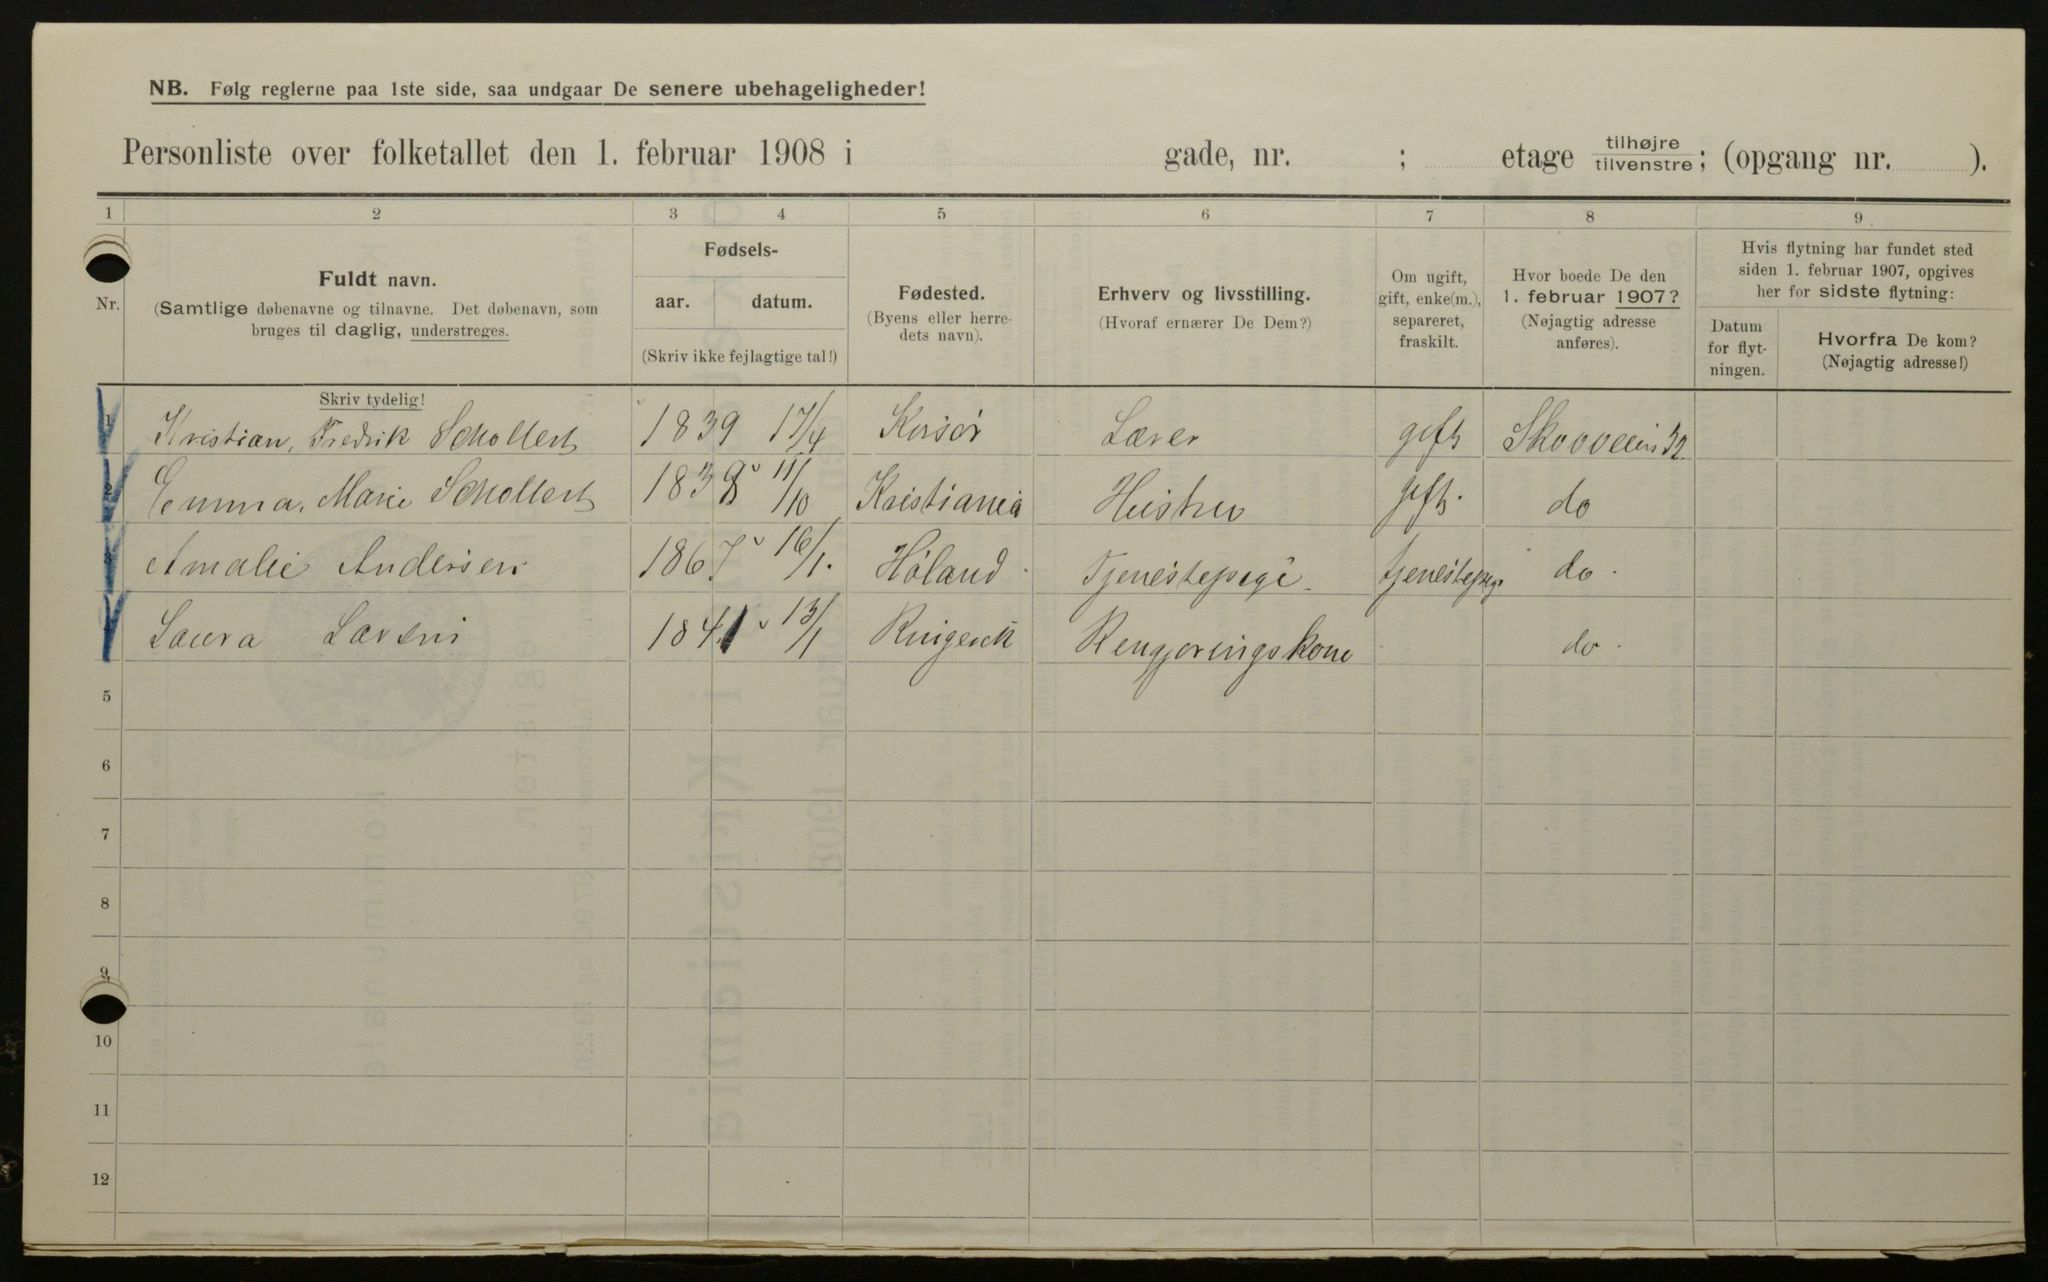 NB. Følg reglerne paa 1ste side, saa undgaar De senere ubehageligheder!
Personliste over folketallet den 1. februar 1908 i gade, nr. ; etage tilhøjre tilvenstre; (opgang nr. ).
1 2 3 4 5 6 7 8 9.
Nr.
Fuldt navn.
(Samtlige døbenavne og tilnavne. Det døbenavn, som
bruges til daglig, understreges.
Skriv tydelig!
Fødsels-
aar. datum.
(Skriv ikke fejlagtige tal!)
Fødested.
(Byens eller herre-
dets navn).
Erhverv og livsstilling.
(Hvoraf ernærer De Dem?)
Om ugift,
gift, enke(m.),
separeret,
fraskilt.
Hvor boede De den
1. februar 1907?
(Nøjagtig adresse
anføres).
Hvis flytning har fundet sted
siden 1. februar 1907, opgives
her for sidste flytning:
Datum
for flyt-
ningen.
Hvorfra De kom?
(Nøjagtig adresse!)
1 Kristian, Fredrik Schollert 1839 17/4 Korsør Lærer gift Skovveien 32
2 Emma, Marie Schollert 11/10 Kristiania Hustru gift. do
3 Amalie Andersen 1867 16/1. Høland Tjenestepige tjenestepige do.
4 Laura Larsen 1841 13/1 Rengjøringskone do.
5
6
7
8
9
10
11
12